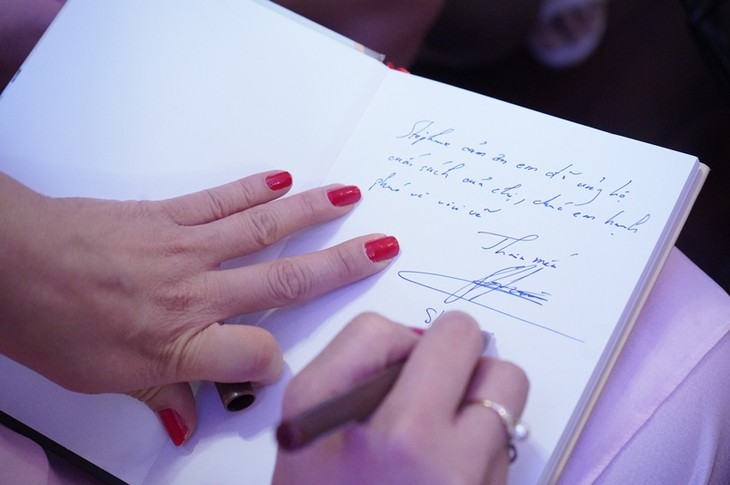 Stéphane cảm ơn em đã ủng hộ
cuốn sách của chị, chúc em hạnh
phúc và vui vẻ
Thân mến
S